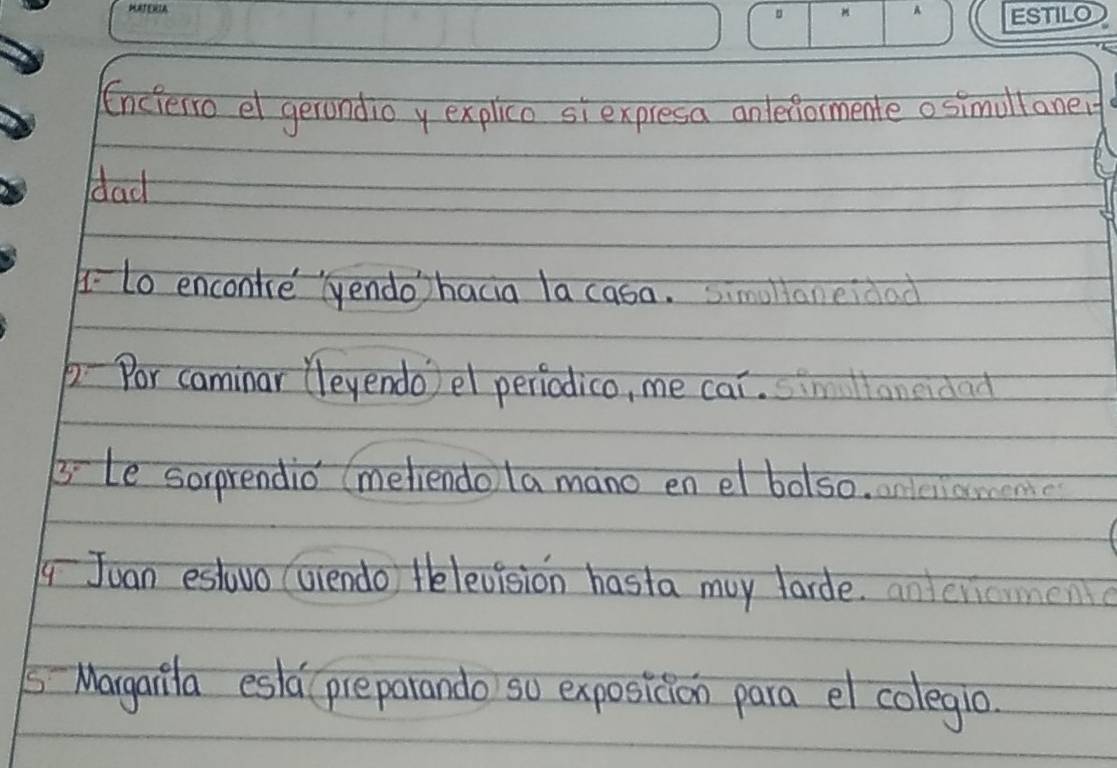 MATERIA D M A ESTILO
Encierro el gerundio y explico si expresa anteriormente o simultanei
dad
1- Lo encontré "yendo" hacia la casa. simultaneidad
2- Por caminar "leyendo" el periodico, me caí. simultaneidad
3- Le sorprendió metiendo la mano en el bolso. anteriormente
4- Juan estuvo viendo televisión hasta muy tarde. anteriormente
5- Margarita está preparando su exposición para el colegio.